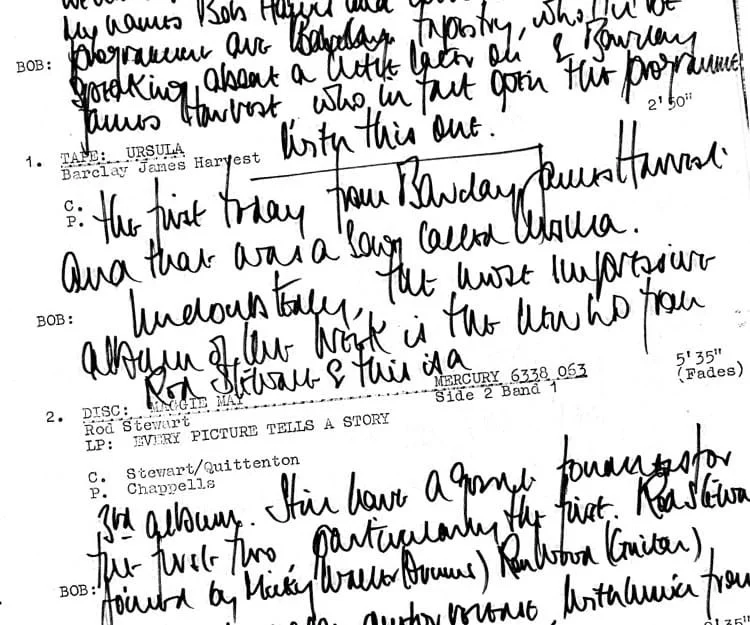 My names Bob Harris and
programme are Barclay James Tapestry, who I'll be
BOB: speaking about a little later on & Barclay
James Harvest who in fact open the programme
listen this one.
2'50"
1. TAPE: URSULA
Barclay James Harvest
C.
P.
The first today from Barclay James Harvest.
And that was a song called Ursula.
BOB: Undoubtedly, the most impressive
album of the week is the new LP from
Rod Stewart & this is a
5'35"
(Fades)
2. DISC: MAGGIE MAY MERCURY 6338 063
Rod Stewart Side 2 Band 1
LP: EVERY PICTURE TELLS A STORY
C. Stewart/Quittenton
P. Chappells
3rd album. Still have a great fondness for
the first two particularly the first. Rod Stewa
BOB: joined by Micky Waller (Drums) Ron Wood (Guitar)
from